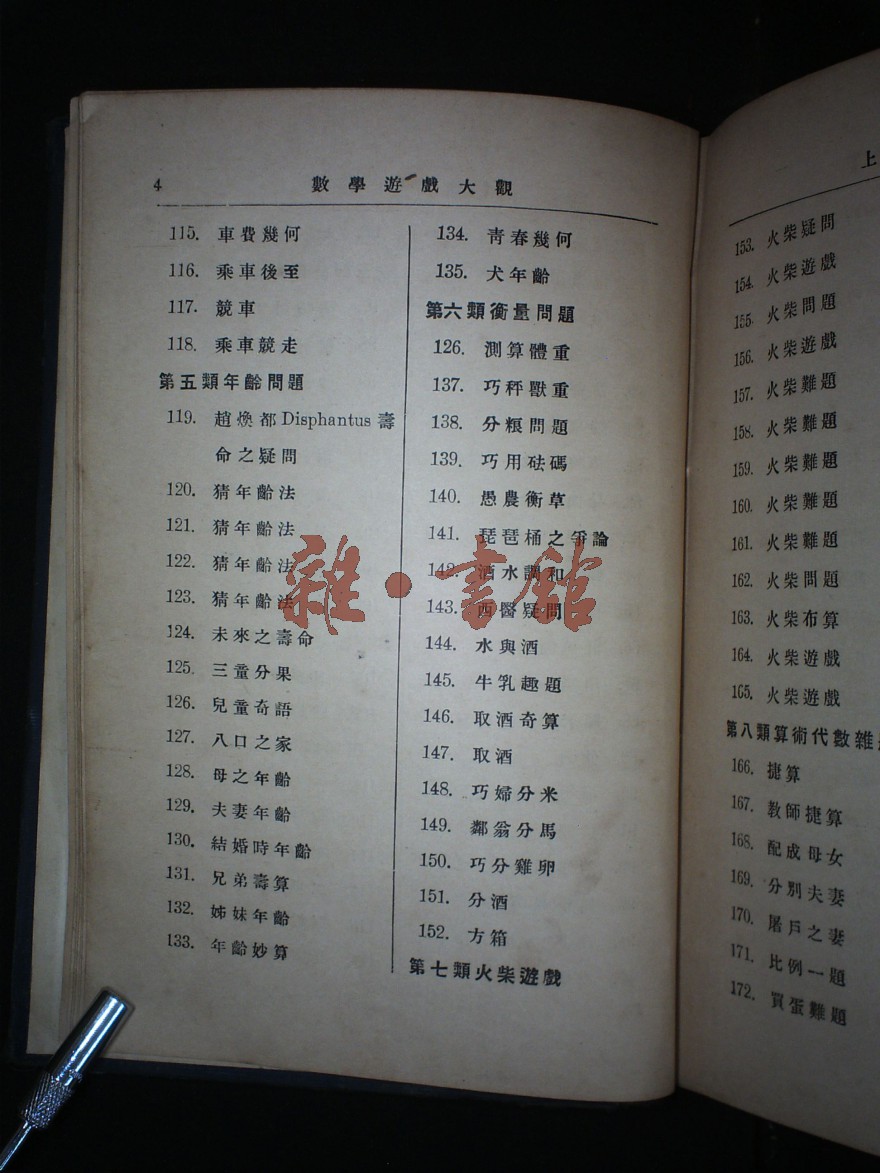 4
數學遊戲大觀
115. 車費幾何
116. 乘車後至
117. 競車
118. 乘車競走
第五類年齡問題
119. 趙煥都 Disphantus 壽
命之疑問
120. 猜年齡法
121. 猜年齡法
122. 猜年齡法
123. 猜年齡法
124. 未來之壽命
125. 三童分果
126. 兒童奇語
127. 八口之家
128. 母之年齡
129. 夫妻年齡
130. 結婚時年齡
131. 兄弟壽算
132. 姊妹年齡
133. 年齡妙算
134. 靑春幾何
135. 犬年齡
第六類衡量問題
126. 測算體重
137. 巧秤獸重
138. 分粮問題
139. 巧用砝碼
140. 愚農衡草
141. 琵琶桶之爭論
142. 酒水調和
143. 西醫疑問
144. 水與酒
145. 牛乳趣題
146. 取酒奇算
147. 取酒
148. 巧婦分米
149. 鄰翁分馬
150. 巧分雞卵
151. 分酒
152. 方箱
第七類火柴遊戲
雜·書館
上
153. 火柴疑問
154. 火柴遊戲
155. 火柴問題
156. 火柴遊戲
157. 火柴難題
158. 火柴難題
159. 火柴難題
160. 火柴難題
161. 火柴難題
162. 火柴問題
163. 火柴布算
164. 火柴遊戲
165. 火柴遊戲
第八類算術代數雜
166. 捷算
167. 教師捷算
168. 配成母女
169. 分別夫妻
170. 屠戶之妻
171. 比例一題
172. 買蛋難題